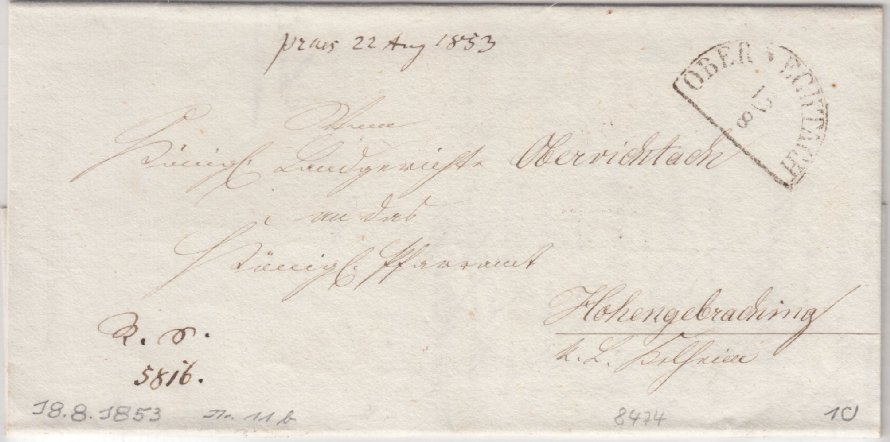 praes 22 Aug 1853
OBERVIECHTACH
Vom
Königl. Landgerichte Oberviehtach
an das
Königl. Pfarramt
Hohengebraching
k. L. Kelheim
R. S.
5816.
18.8.1853
8474
10